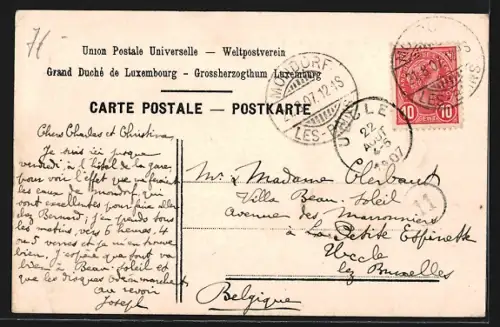 71
Union Postale Universelle — Weltpostverein
Grand Duché de Luxembourg - Grossherzogthum Luxemburg
CARTE POSTALE — POSTKARTE
MONDORF
8.07.12-1S
LES-BAINS
UCCLE
22
AOUT
1907
10 10
LES-BAINS
Chers Charles et Christina
Je suis ici jusque
vendredi à l'hôtel de la gare
pour voir l'effet que me fairont
les eaux de mondorf qui
sont excellentes pour faire aller
chez Bernard. J'en prends tous
les matins vers 6 heures, 4
ou 5 verres et je m'en trouve
bien. J'espère que tout va
bien à Beau-Soleil et
que les disques ont marché
au revoir
Joseph
Mr & Madame Clerbaut
Villa Beau-Soleil
Avenue des Maronniers
à La Petite Espinette
Uccle
lez Bruxelles
Belgique
11